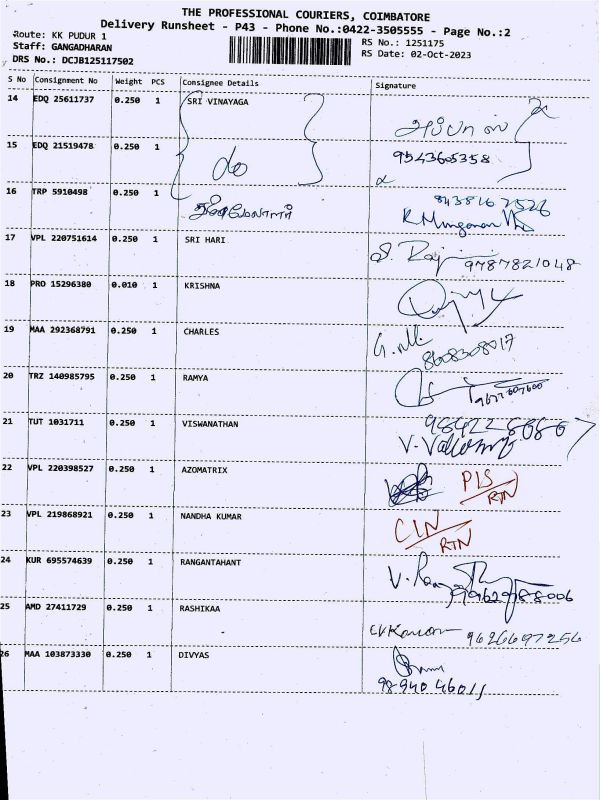 THE PROFESSIONAL COURIERS, COIMBATORE
Delivery Runsheet - P43 - Phone No.:0422-3505555 - Page No.:2
Route: KK PUDUR 1
Staff: GANGADHARAN
DRS No.: DCJB125117502
RS No.: 1251175
RS Date: 02-Oct-2023
S No Consignment No Weight PCS Consignee Details Signature
14 EDQ 25611737 0.250 1 SRI VINAYAGA
15 EDQ 21519478 0.250 1 9543605358
16 TRP 5910498 0.250 1 8438167526
17 VPL 220751614 0.250 1 SRI HARI S. Raj 9787821048
18 PRO 15296380 0.010 1 KRISHNA
19 MAA 292368791 0.250 1 CHARLES 8608308017
20 TRZ 140985795 0.250 1 RAMYA
21 TUT 1031711 0.250 1 VISWANATHAN
22 VPL 220398527 0.250 1 AZOMATRIX PLS/RTN
23 VPL 219868921 0.250 1 NANDHA KUMAR CLN/RTN
24 KUR 695574639 0.250 1 RANGANTHANT
25 AMD 27411729 0.250 1 RASHIKAA 9626697256
26 MAA 103873330 0.250 1 DIVYAS 9894046011